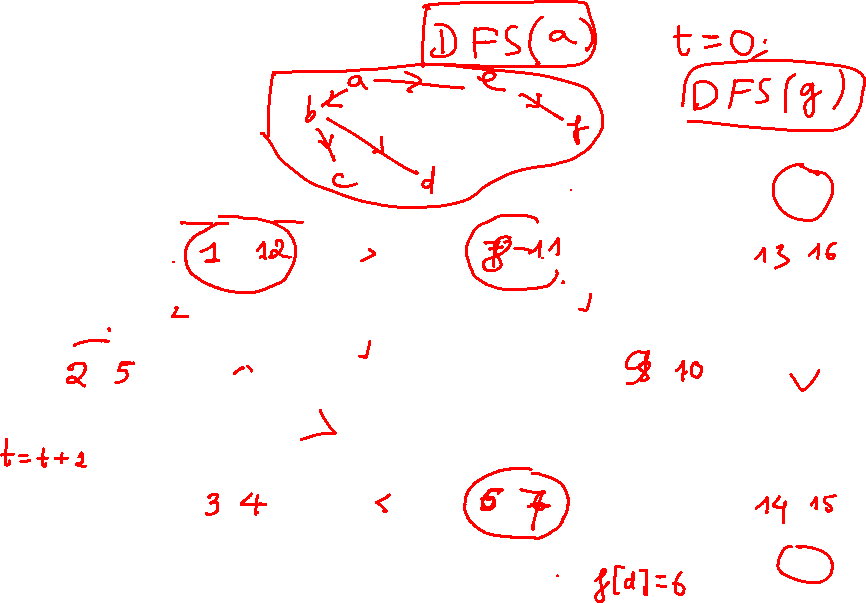 DFS(a)
t=0;
DFS(g)
a e
b f
c d
1 12 > -11
13 16
2 5 10
t=t+1
3 4 < 14 15
f[d]=6